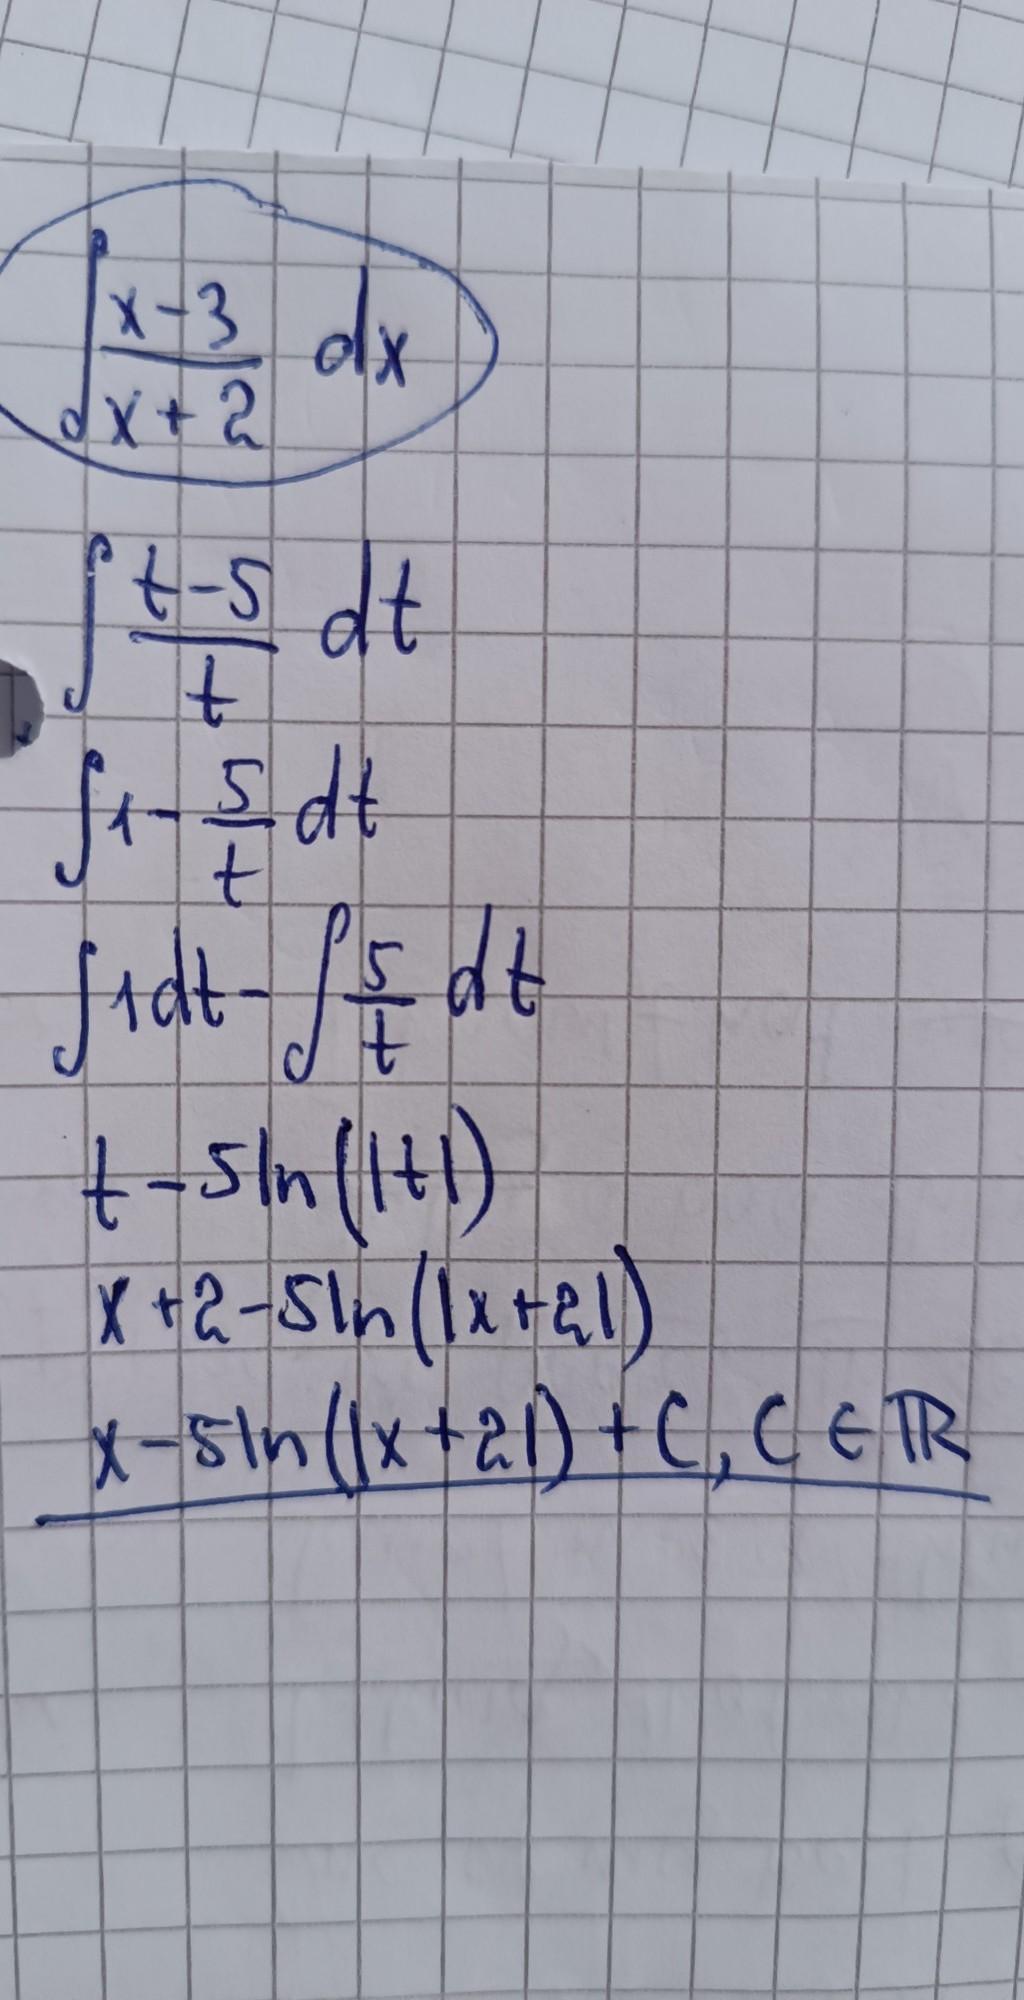 ∫ (x-3)/(x+2) dx
∫ (t-5)/t dt
∫ 1 - 5/t dt
∫ 1 dt - ∫ 5/t dt
t - 5 ln(|t|)
x + 2 - 5 ln(|x+2|)
x - 5 ln(|x+2|) + C, C ∈ ℝ